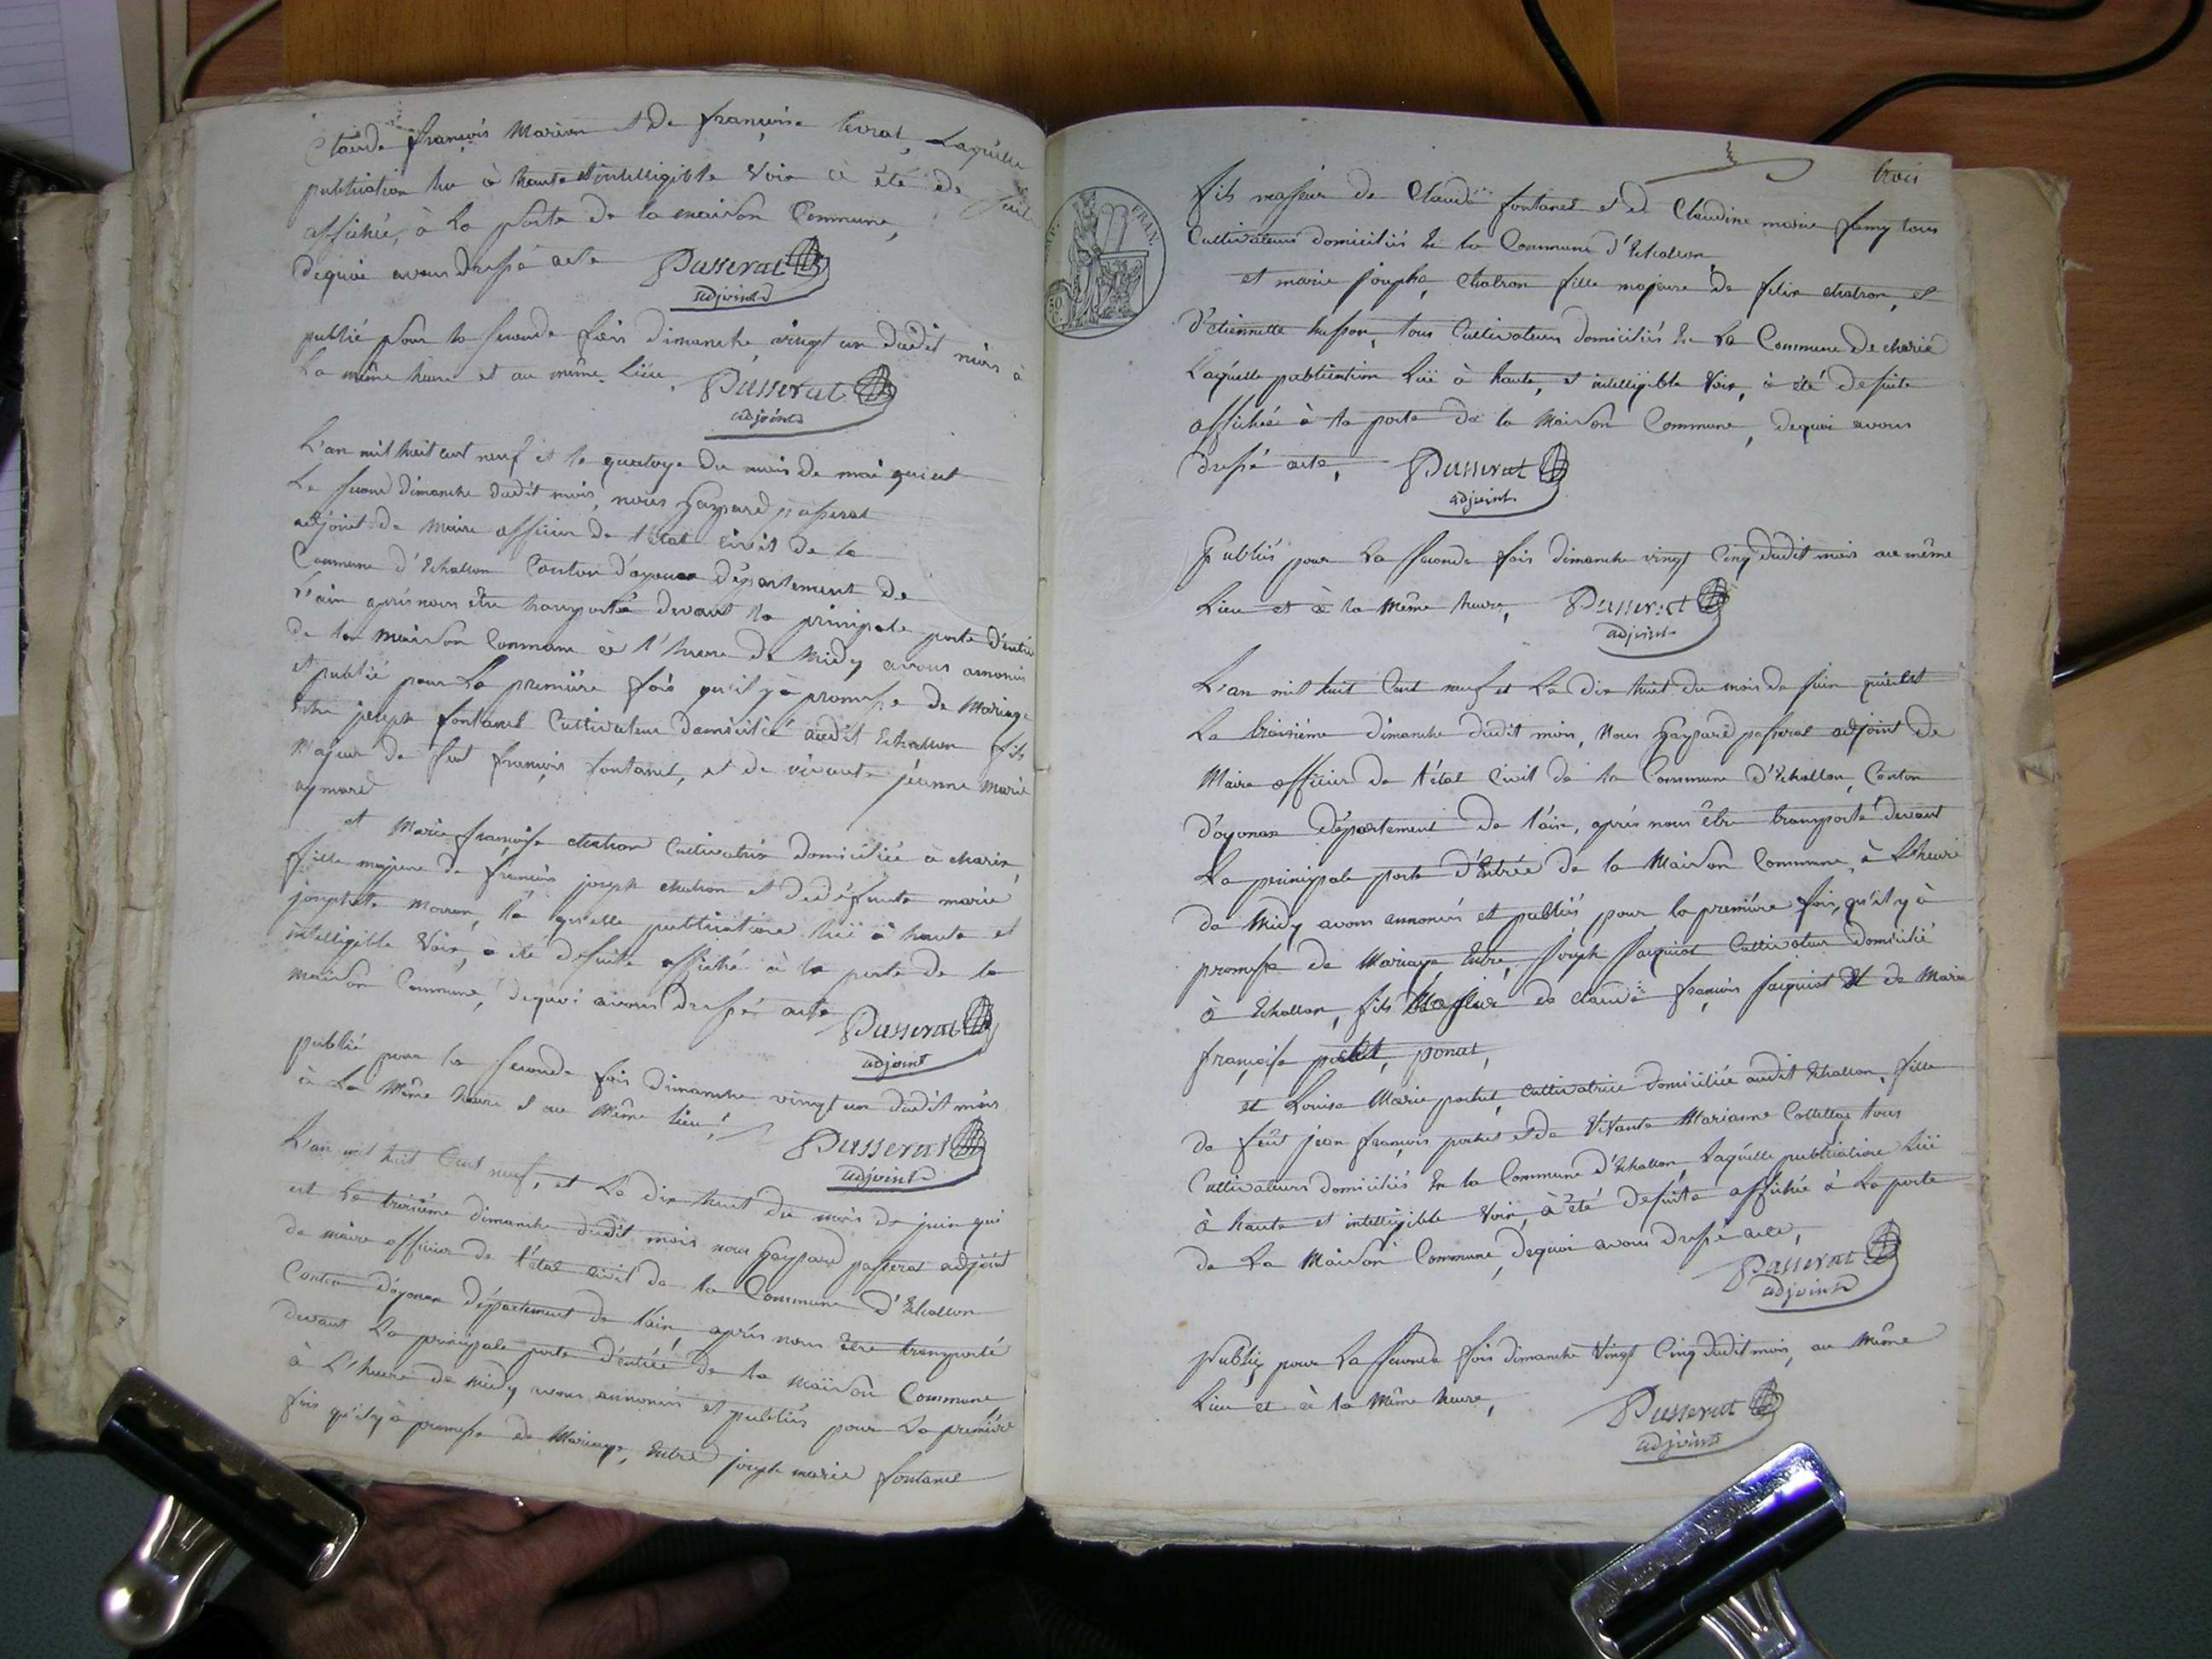 Claude françois Marion et de françoise levrat, Laquelle
publication lue à haute et intelligible Voix à été de suite
affichée, à la porte de la maison Commune,
dequoi avons dressé acte Passerat
adjoint
publié pour la seconde fois dimanche vingt un dudit mois à
La même heure et au même Lieu. Passerat
adjoint
L'an mil huit cent neuf et le quatorze du mois de mai qui est
Le second dimanche dudit mois, nous Gaspard passerat
adjoint de Maire officier de l'état civil de la
Commune d'Echallon Canton d'oyonax département de
L'ain après nous être transporté devant la principale porte d'entrée
de la maison Commune à l'heure de midy avons annoncé
et publié pour La première fois qu'il y à promesse de Mariage
Entre joseph fontanel Cultivateur domicilié audit Echallon fils
Majeur de feut françois fontanel, et de vivante jeanne Marie
aymard
et Marie françoise chatron Cultivatrix domiciliée à charix,
fille majeure de françois joseph chatron et de défunte marie
josephte la quelle publication lüe à haute et
intelligible Voix, à été desuite affiché à la porte de la
maison Commune, dequoi avons dressé acte
Passerat
adjoint
publié pour la seconde fois dimanche vingt un dudit mois
à La Même heure et au Même lieu,
Passerat
adjoint
L'an mil huit Cent neuf, et Le dix huit du mois de juin qui
est Le troisième dimanche dudit mois nous Gaspard passerat adjoint
de maire officier de l'état civil de la Commune d'Echallon
Canton d'oyonax département de l'ain, après nous être transporté
devant La principale porte d'entrée de la Maison Commune
à L'heure de midy avons annoncés et publiés pour La première
fois qu'il y à promesse de Mariage, Entre joseph marie fontanel
trois
fils majeur de Claude fontanel et de Claudine marie famy tous
Cultivateurs domiciliés En la Commune d'Echallon
et marie josephe, chatron fille majeure de felix chatron, et
d'etiennette husson, tous Cultivateurs domiciliés En La Commune de charix
Laquelle publication Lüe à haute, et intelligible Voix, à été desuite
affichée à la porte de la Maison Commune, dequoi avons
dressé acte, Passerat
adjoint
Publiés pour La seconde fois dimanche vingt Cinq dudit mois au même
Lieu et à la Même heure, Passerat
adjoint
L'an mil huit Cent neuf et Le dix huit du mois de juin qui est
La troisième dimanche dudit mois, Nous Gaspard passerat adjoint de
Maire officier de l'état Civil de la Commune d'Echallon, Canton
d'oyonax département de l'ain, après nous être transporté devant
La principale porte d'Entrée de la Maison Commune, à L'heure
de Midy avons annoncés et publiés pour la première fois, qu'il y à
promesse de Mariage, Entre, Joseph Jaquiot Cultivateur domicilié
à Echallon, fils de Claude françois Jaquiot Et de Marie
françoise ponat,
et Louise Marie pochet, cultivatrice domiciliée audit Echallon, fille
de feüt jean françois pochet et de ViVante Marianne Collettaz tous
Cultivateurs domiciliés En la Commune d'Echallon, Laquelle publication Lüe
à haute et intelligible Voix, à été desuite affichée à La porte
de La Maison Commune, dequoi avons dressé acte,
Passerat
adjoint
Publiez pour La seconde fois dimanche Vingt Cinq dudit mois, au Même
Lieu et à la Même heure, Passerat
adjoint